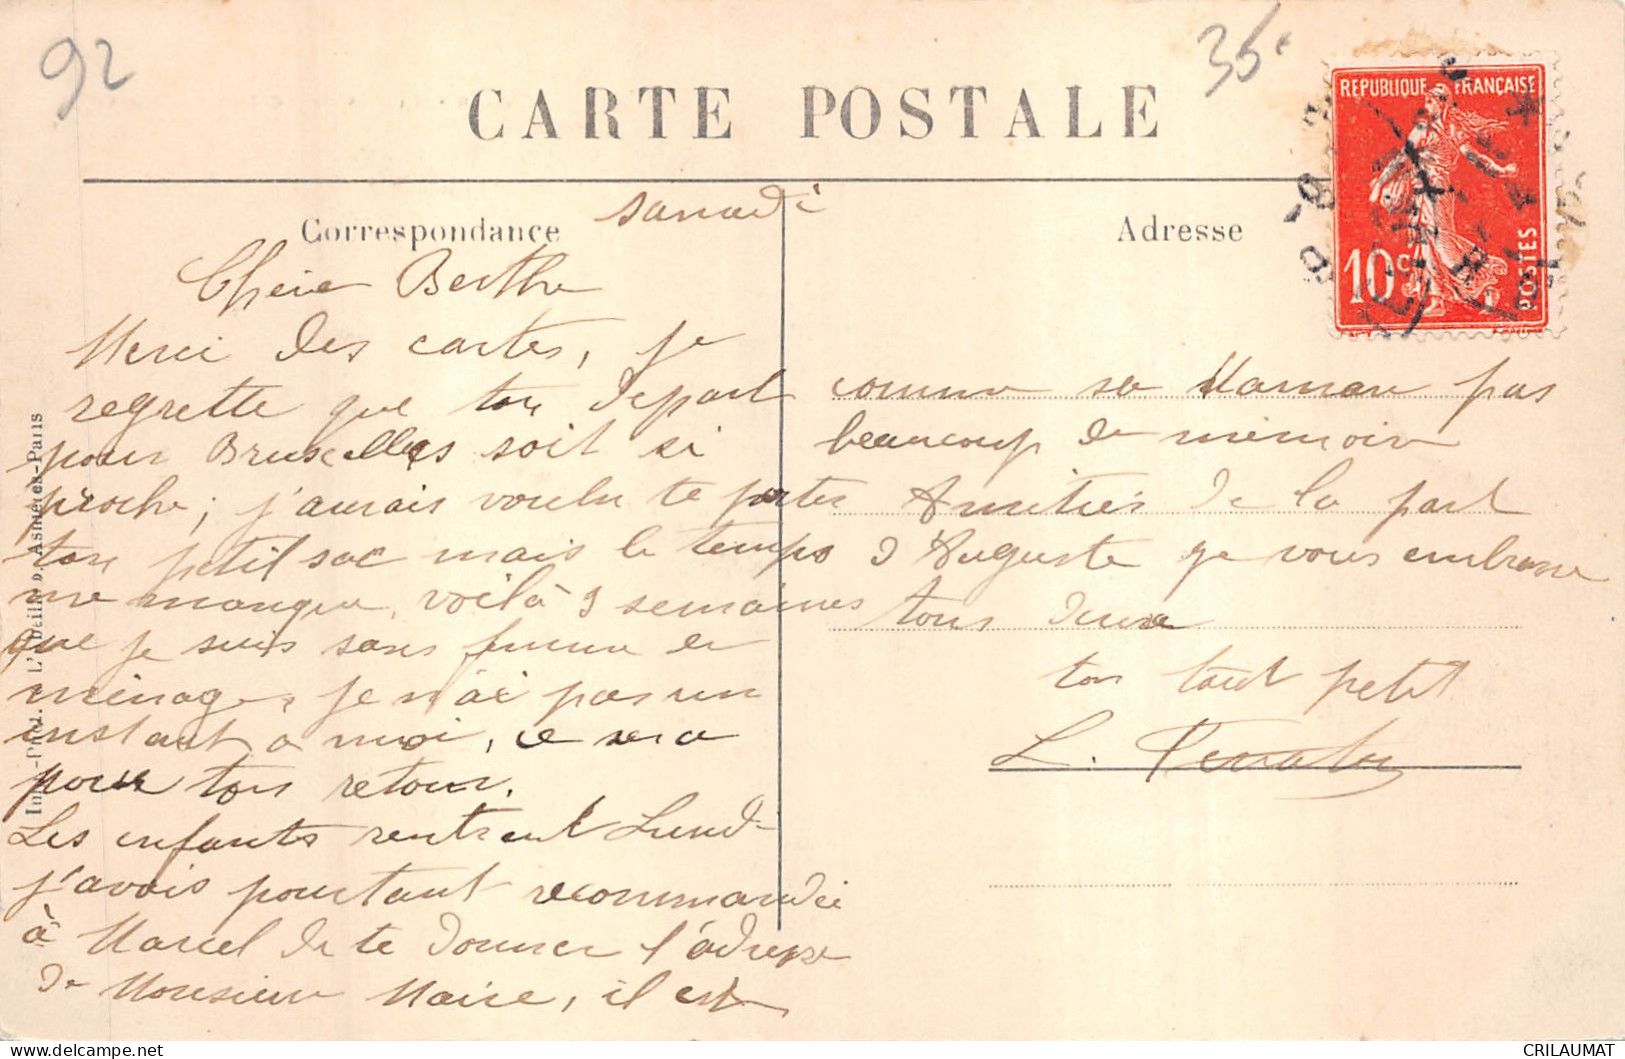 92
35€
CARTE POSTALE
REPUBLIQUE FRANÇAISE
10c
POSTES
Correspondance
Adresse
samedi
Chère Berthe
Merci des cartes, je
regrette que ton départ
pour Bruxelles soit si
proche; j'aurais voulu te porter
ton petit sac mais le temps
me manque, voilà 3 semaines
que je suis sans femme de
ménage, je n'ai pas un
instant à moi, ce sera
pour ton retour.
Les enfants rentrent Lundi
j'avais pourtant recommandé
à Marcel de te donner l'adresse
de Monsieur Maire, il est
comme sa Maman pas
beaucoup de mémoire
Amitiés de la part
d'Auguste je vous embrasse
tous deux
ton tout petit
L.
Imp.-Phot. L'Abeille, Asnières-Paris
CRILAUMAT